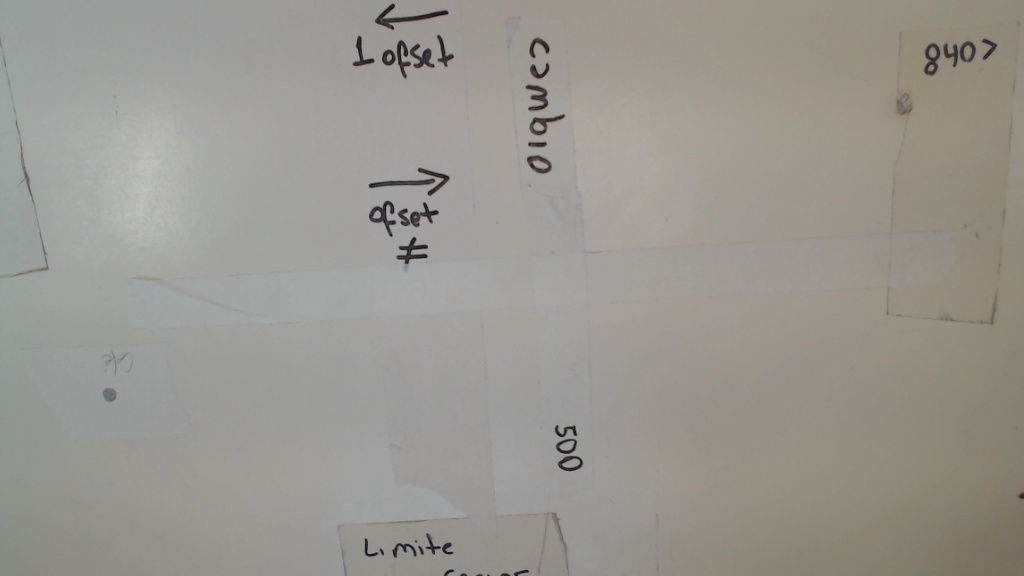 ←
1 ofset
cambio
840>
→
ofset
#
500
Limite